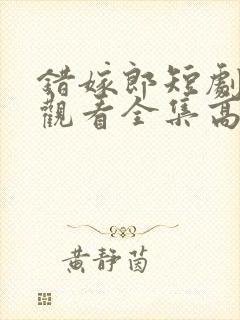 錯嫁郎短劇
觀看全集高
黃靜茵